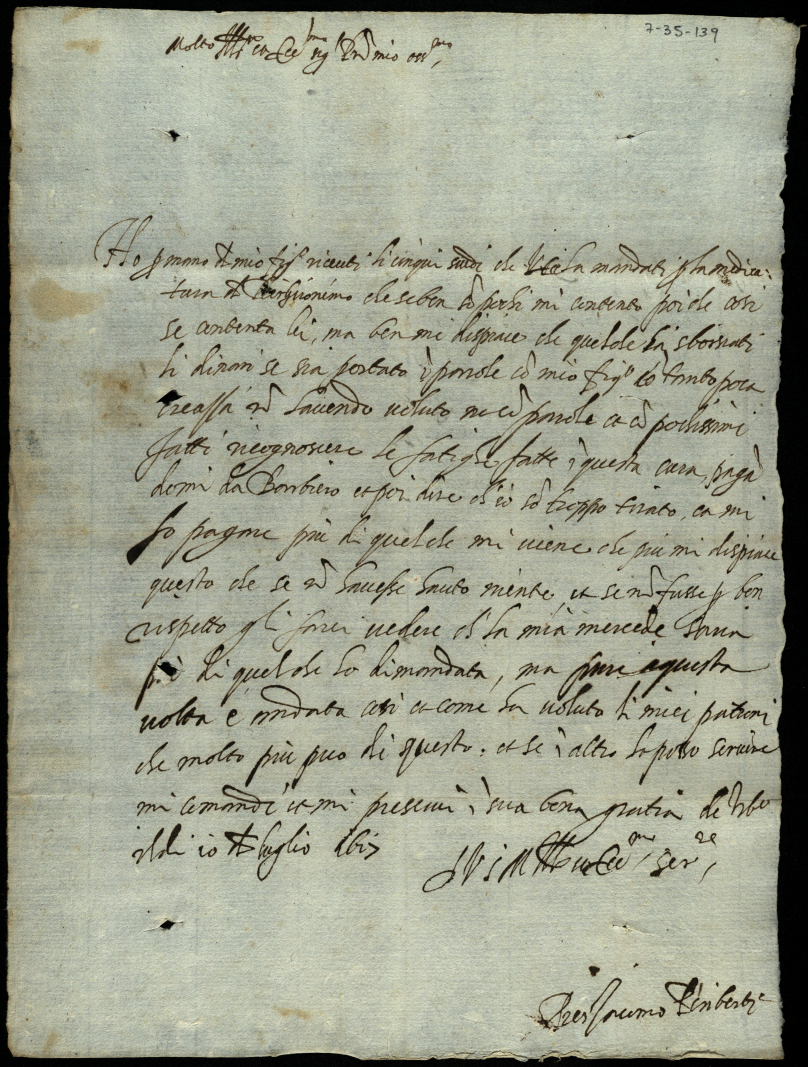 7-35-139
Molto Ill.re et Ecc.mo sig.r P.rõn mio oss.mo,
Ho p mano di mio fig.lo riceuti li cinqui scudi che V.S. ha mandati p la medica:
tura di che seben cõ pochi mi contento poi che cosi
se contenta lei, ma ben mi dispiace che quel che ha sborsati
li dinari se sia portato ĩ parole cõ mio fig.lo cõ tanto poca
creãza nõ havendo voluto ne cõ parole et cõ pochissimi
fatti ricognoscere le fatighe fatte ĩ questa cura, pagã
domi da Barbiero et poi dire ch'io sõ troppo tirato, et mi
fo pagare più di quel che mi viene che più mi dispiace
questo che se nõ havesse hauto mente et se nõ fusse p ben
rispetto gli farei vedere ch la mia mercede saria
più di quel che ho dimandata, ma pure ĩ questa
volta è andata cosi et come ha voluto li miei patroni
che molto più puo di questo. et se ĩ altro la posso servire
mi comandi et mi preservi ĩ sua bona gratia de
il di 10 di luglio
D V S M Ill et Ecc.mo Ser.re,
Jacomo